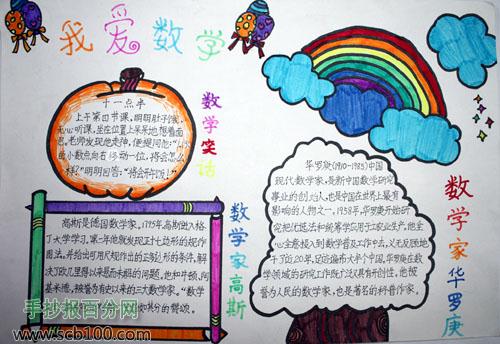 我爱数学
十一点半
上午第四节课,明明肚子饿,
无心听课,坐在位置上呆呆地想着面
包。老师发现他走神,便提问他:
的小数点向右移动一位,将会怎么
样?”明明回答:“将会开午饭!”
数学笑话
高斯是德国数学家。1795年,高斯进入格
丁大学学习。第一年他就发现正十七边形的规作
图法。并给出可用尺规作出的正多边形的条件。
解决了欧几里得以来悬而未解的问题。他和牛顿、阿
基米德,被誉为有史以来的三大数学家。“数学
数学家高斯
华罗庚(1910-1985)中国
现代数学家。是新中国数学研究
事业的创始人,也是中国在世界上最有
影响的人物之一。1958年,华罗庚开始研
究把优选法和统筹学应用于工农业生产。他全
心全意投入到数学普及工作中去,义无反顾地
干了近20年,足迹遍布大半个中国。华罗庚在数
学领域的研究工作既广泛又具有开创性。他被
誉为人民的数学家,也是著名的科普作家。
数学家华罗庚
手抄报百分网
www.scb100.com